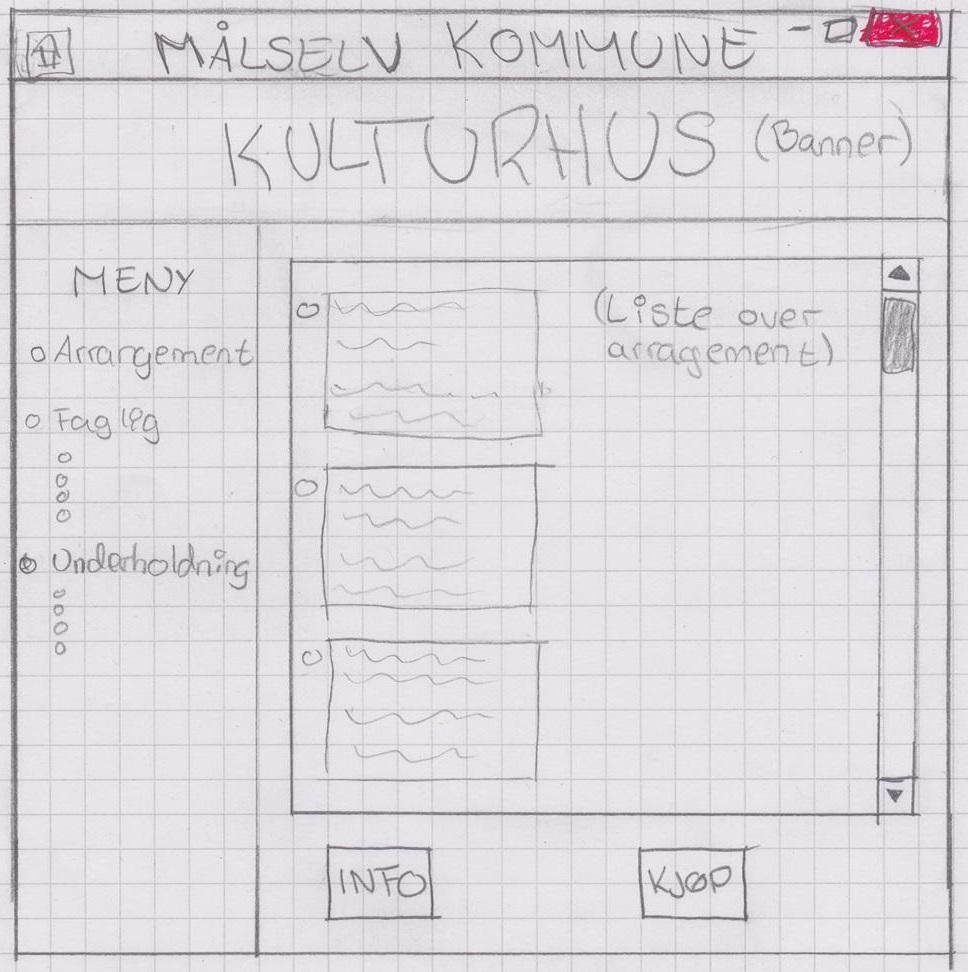 MÅLSELV KOMMUNE
KULTURHUS (Banner)
MENY
Arrangement
Faglig
Underholdning
(Liste over
arragement)
INFO
KJØP